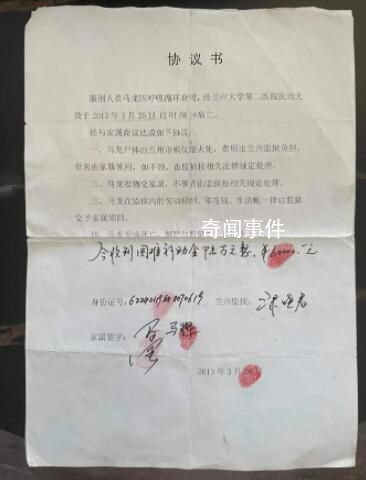 协 议 书
服刑人员马龙因呼吸循环衰竭，经兰州大学第二医院医治无
效于 2013 年 3 月 26 日 12 时 50 分病亡。
经与家属商议达成如下协议：
一、马龙尸体由兰州市殡仪馆火化，费用由兰州监狱负担，
骨灰由家属领回，如不领，由监狱按相关法律规定处理。
二、马龙衣物交家属，不领者由监狱按相关规定处理。
三、马龙在监狱内的劳动报酬、零花钱、生活帐一律由监狱
交予家属领回。
四、马龙因病死亡，
奇闻事件
今收到困难补助金陆万元整，¥60000.元
身份证号：
兰州监狱：
家属签字： 马辉
2013 年 3 月 26 日